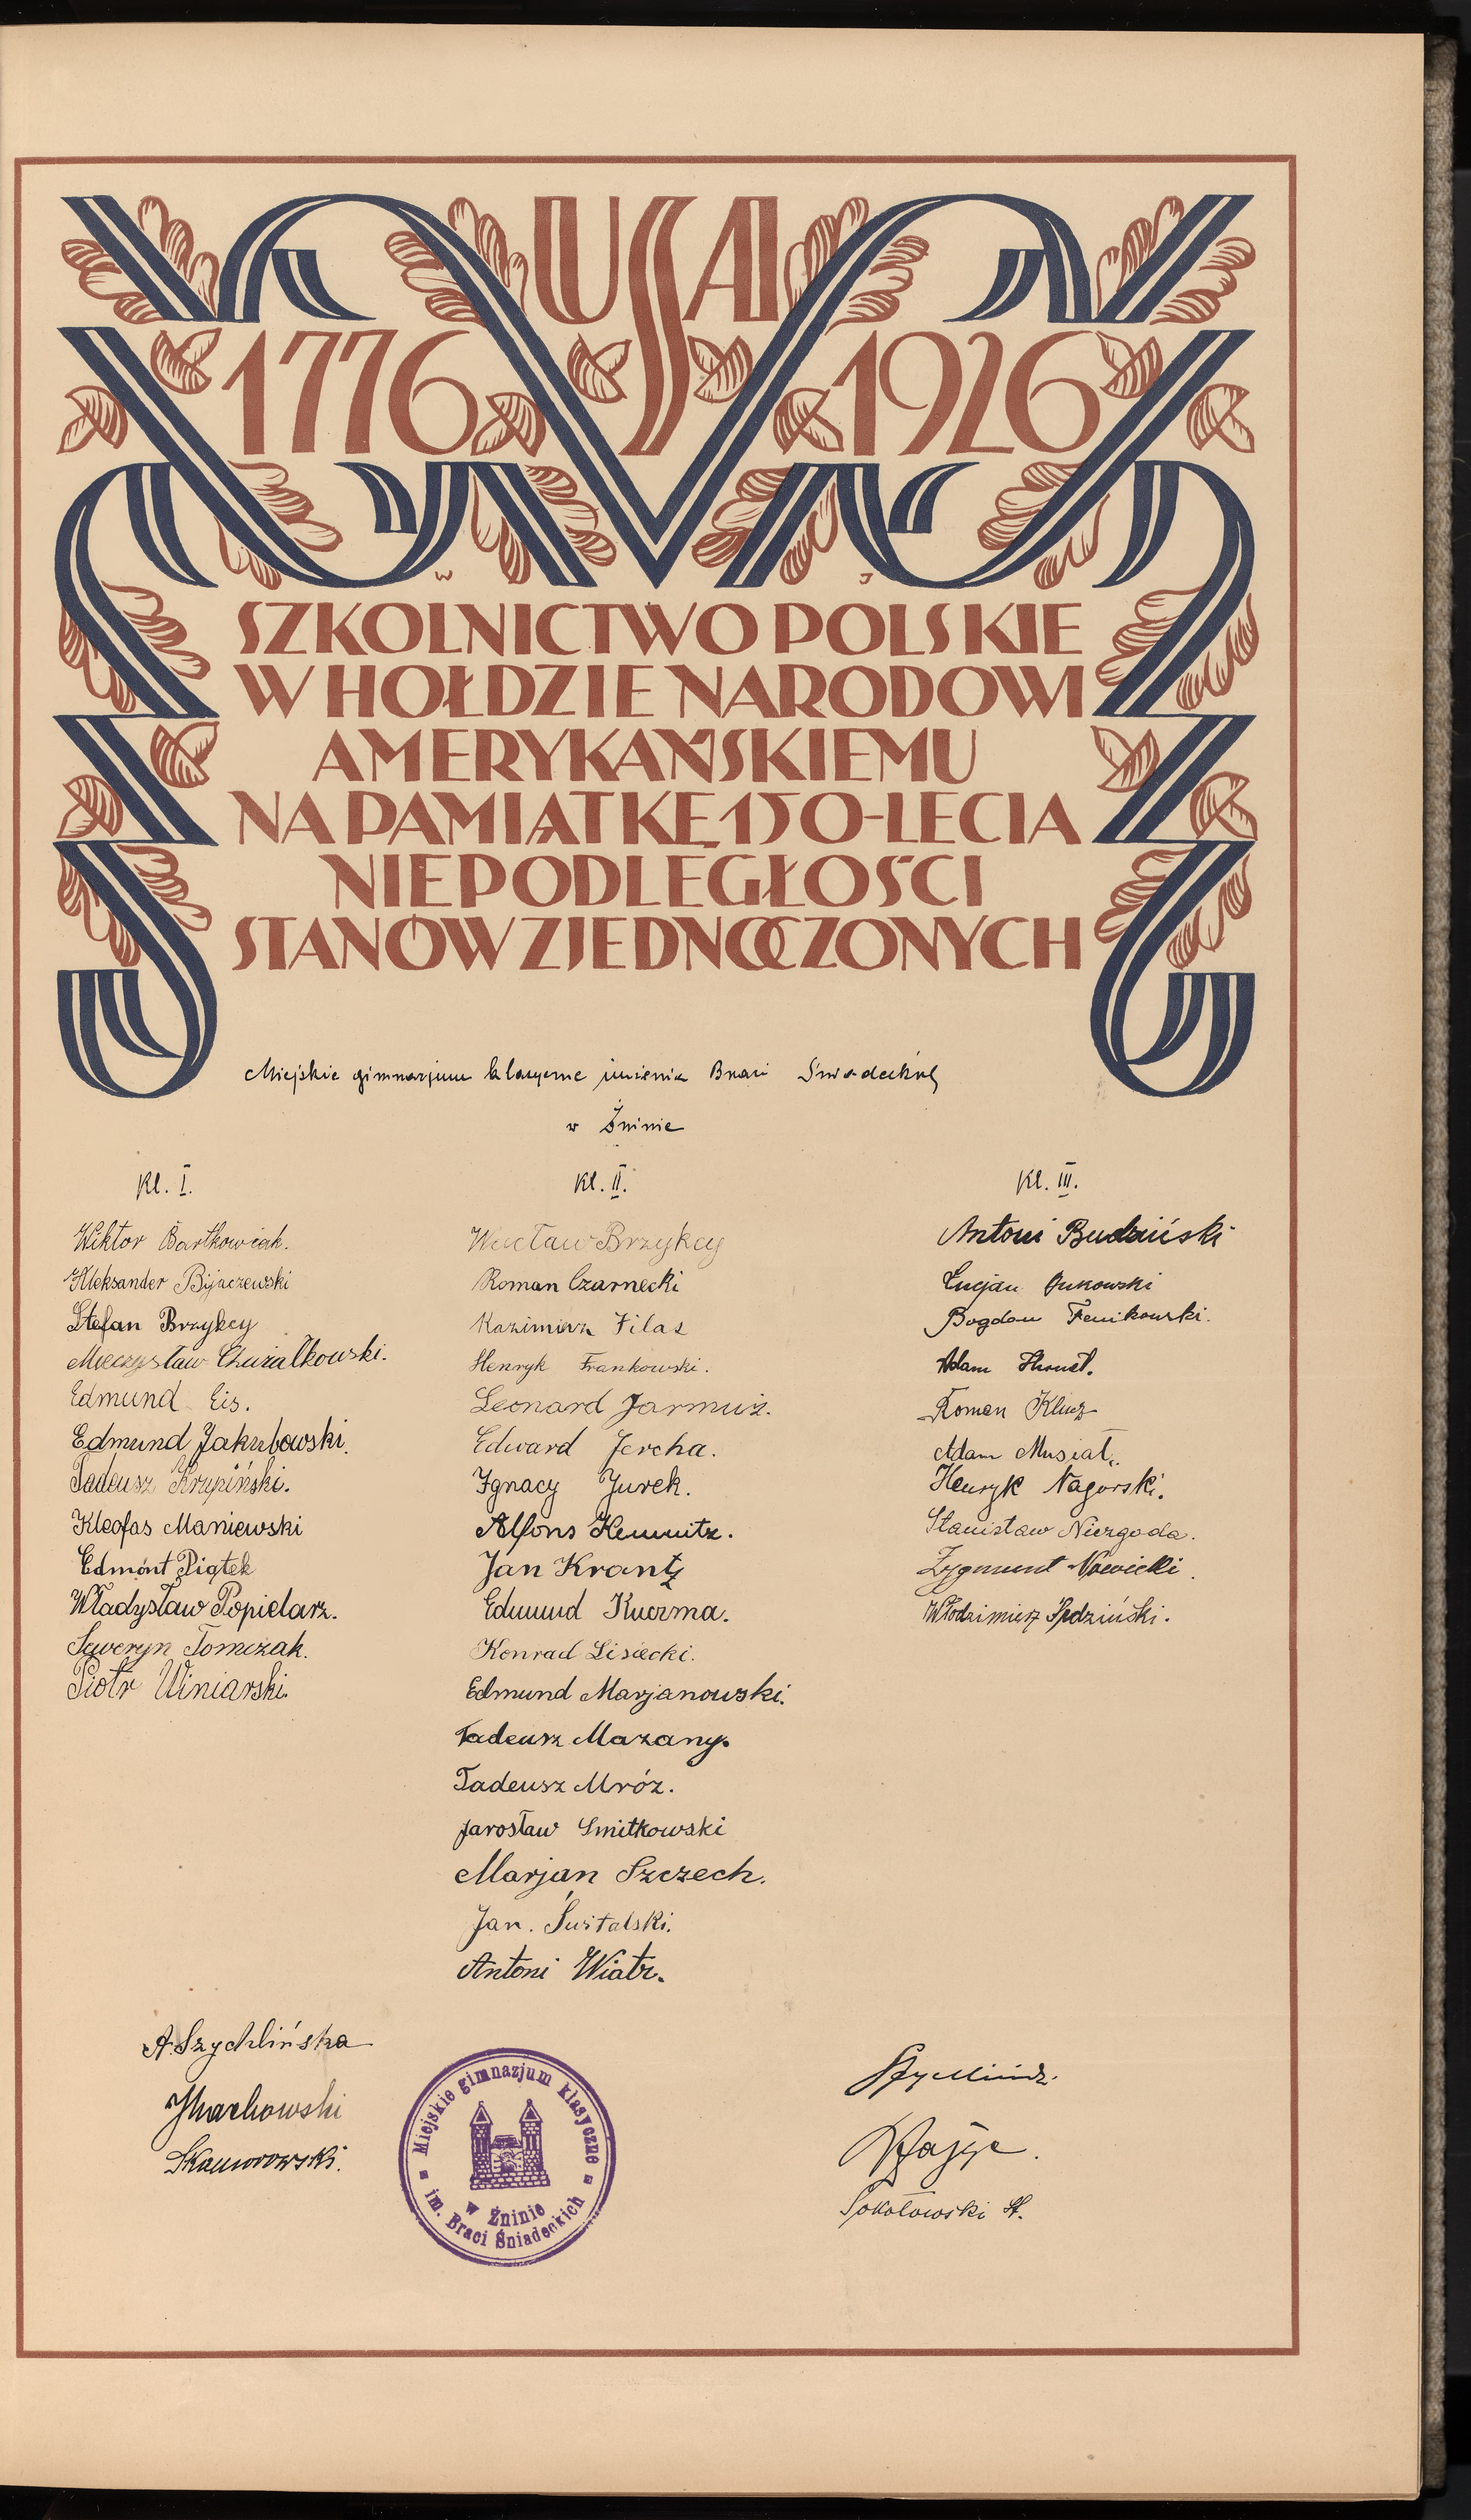 USA
1776 1926
W J
SZKOLNICTWO POLSKIE
W HOŁDZIE NARODOWI
AMERYKAŃSKIEMU
NA PAMIĄTKĘ 150-LECIA
NIEPODLEGŁOŚCI
STANÓW ZJEDNOCZONYCH
Miejskie gimnazjum klasyczne imienia Braci Śniadeckich
w Żninie
Kl. I.
Wiktor Bartkowiak.
Aleksander Bijaczewski
Stefan Brzykcy
Mieczysław Chużałkowski.
Edmund Eis.
Edmund Jakubowski.
Tadeusz Krupiński.
Kleofas Maniewski
Edmónt Piątek
Władysław Popielarz.
Seweryn Tomczak.
Piotr Winiarski.
Kl. II.
Wacław Brzykcy
Roman Czarnecki
Kazimierz Filas
Henryk Frankowski.
Leonard Jarmuż.
Edward Jercha.
Ignacy Jurek.
Alfons Kemnitz.
Jan Krantz
Edmund Kuczma.
Konrad Lisiecki.
Edmund Marjanowski.
Tadeusz Mazany.
Tadeusz Mróz.
Jarosław Smitkowski
Marjan Szczech.
Jan. Świtalski.
Antoni Wiatr.
Kl. III.
Antoni Budziński
Lucjan
Bogdan Fenikowski.
Adam
Roman Klucz
Adam Musiał.
Henryk Nagórski.
Stanisław Niezgoda.
Zygmunt Nowicki.
Włodzimierz Sędziński.
A. Szychlińska
Skaworowski.
Sokołowski St.
Miejskie gimnazjum klasyczne
im. Braci Śniadeckich
w Żninie